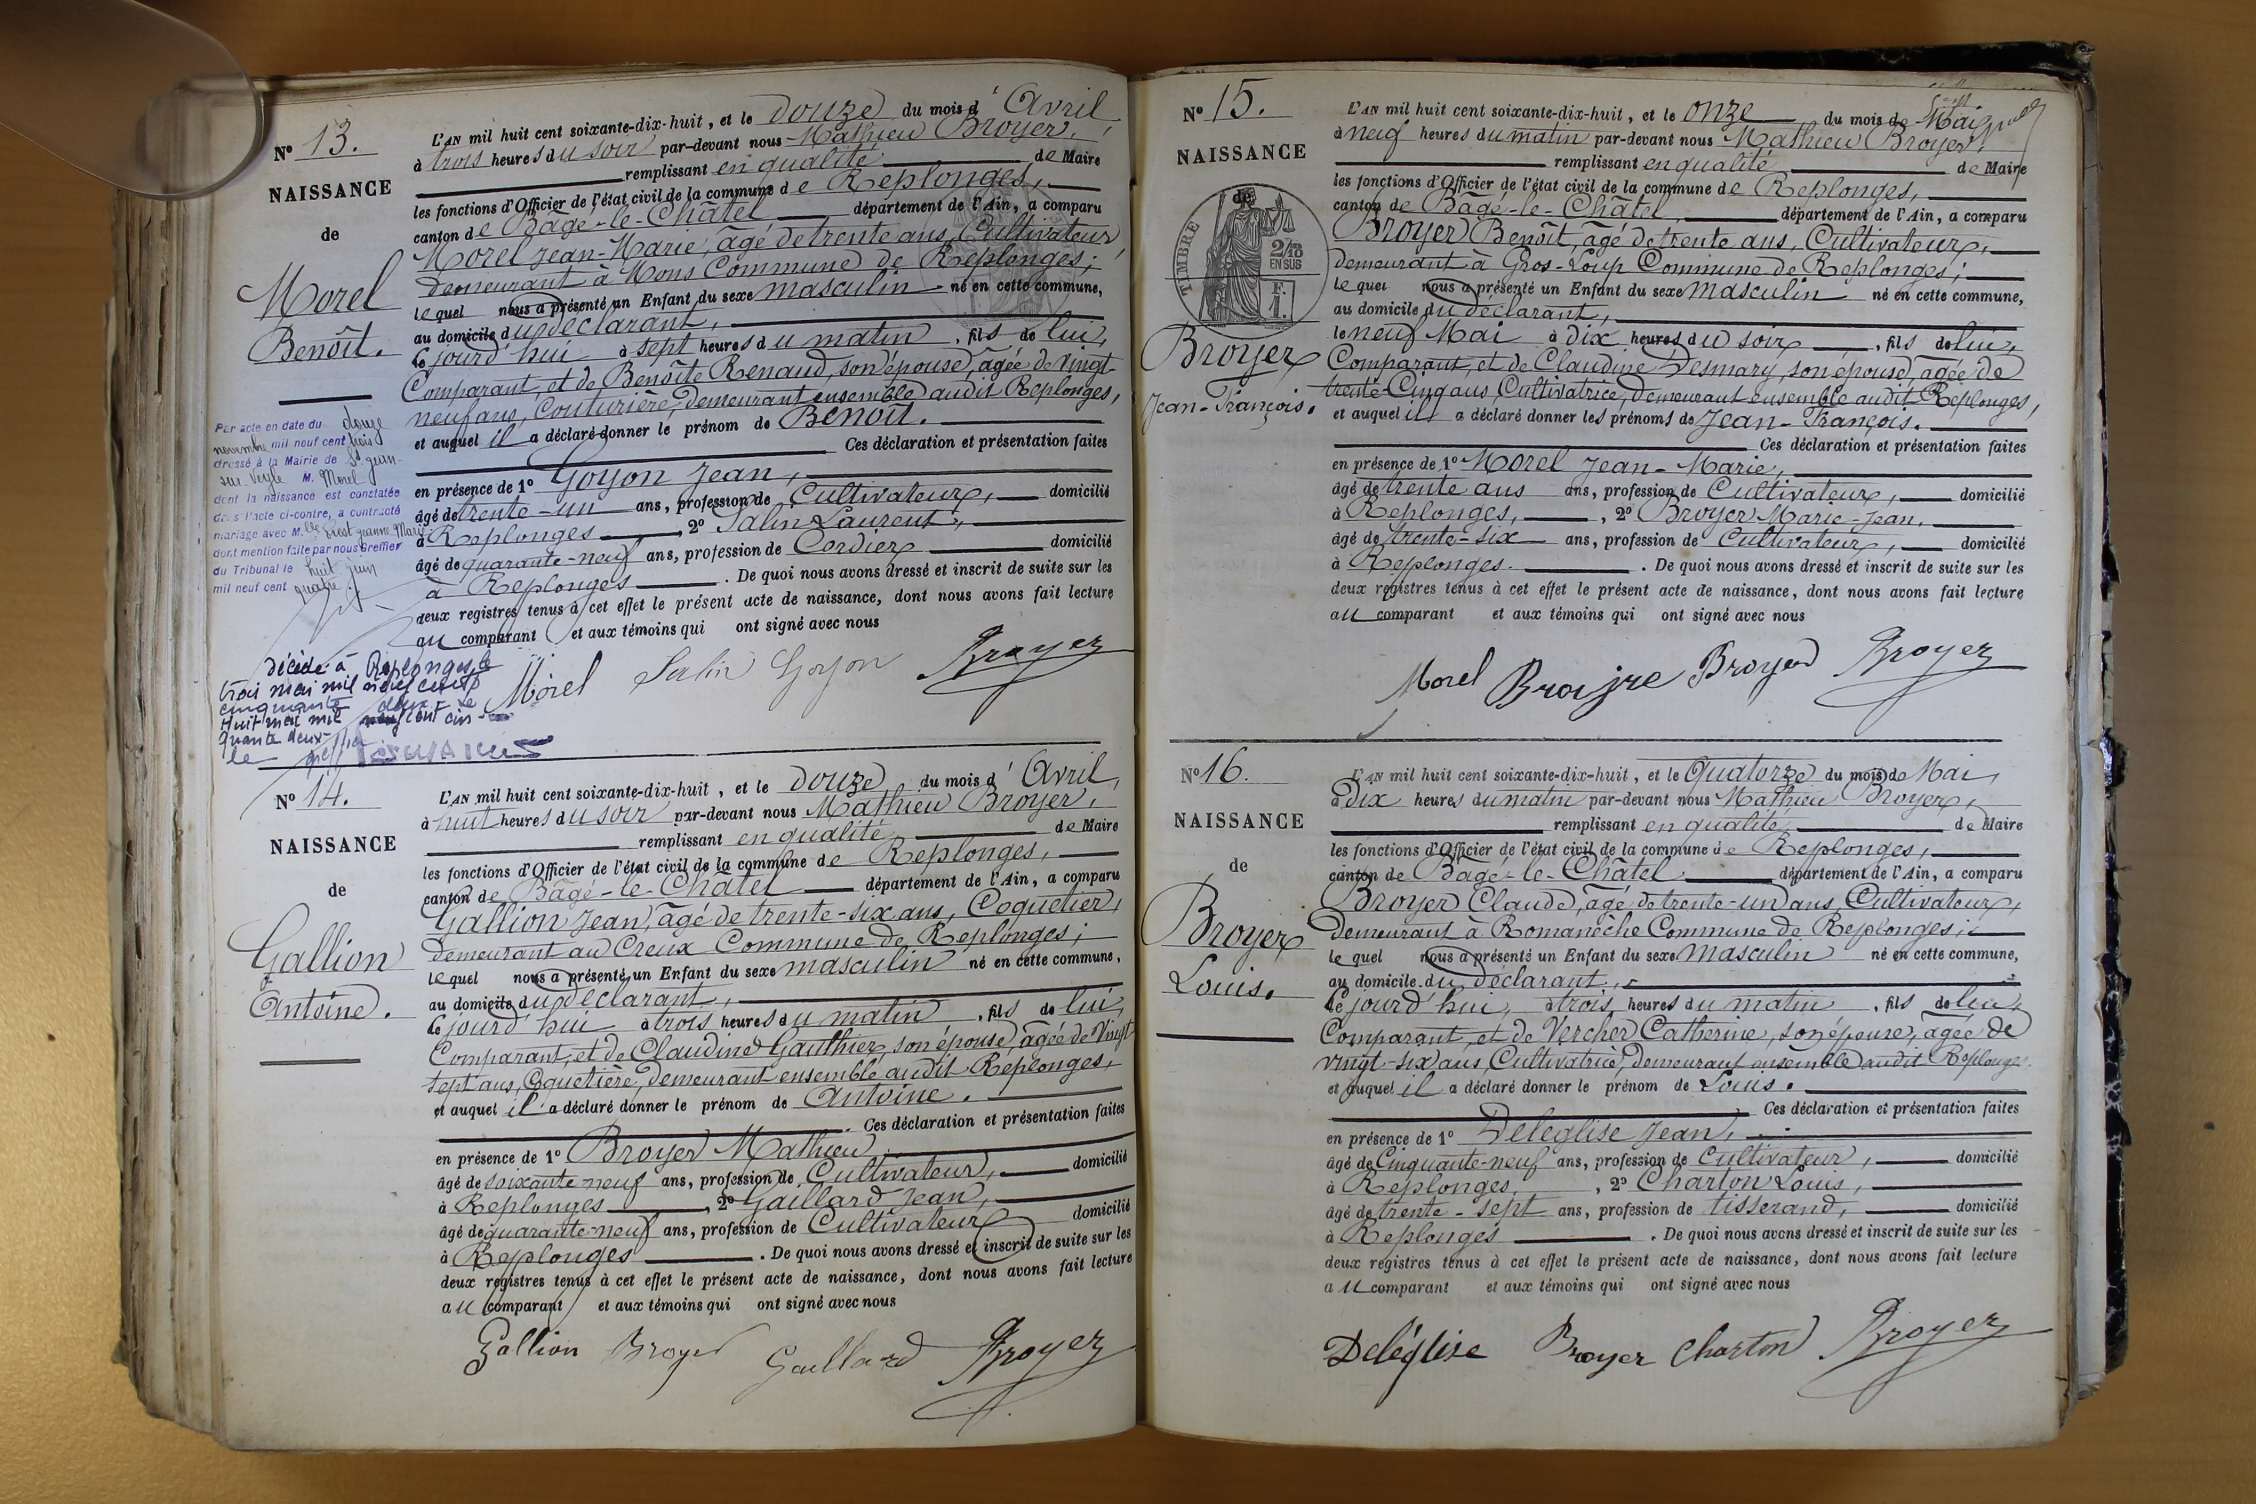 N° 13.
NAISSANCE
de
Morel
Benoît.
L'AN mil huit cent soixante-dix-huit, et le douze du mois d'Avril,
à trois heures du soir par-devant nous Mathieu Broyer,
remplissant en qualité de Maire
les fonctions d'Officier de l'état civil de la commune de Replonges,
canton de Bâgé-le-Châtel département de l'Ain, a comparu
Morel Jean-Marie, âgé de trente ans, Cultivateur,
demeurant à Mons Commune de Replonges;
lequel nous a présenté un Enfant du sexe masculin né en cette commune,
au domicile du déclarant,
le jourd'hui à sept heures du matin, fils de lui,
Comparant, et de Benoîte Renaud, son épouse, âgée de vingt-
neuf ans, Couturière, demeurant ensemble audit Replonges,
et auquel il a déclaré donner le prénom de Benoît.
Ces déclaration et présentation faites
en présence de 1° Goyon Jean,
âgé de trente-un ans, profession de Cultivateur, domicilié
à Replonges, 2° Salin Laurent,
âgé de quarante-neuf ans, profession de Cordier domicilié
à Replonges. De quoi nous avons dressé et inscrit de suite sur les
deux registres tenus à cet effet le présent acte de naissance, dont nous avons fait lecture
au comparant et aux témoins qui ont signé avec nous
Morel Salin Goyon Broyer
Par acte en date du douze
novembre mil neuf cent trois
dressé à la Mairie de St Jean-
sur-Veyle M. Morel
dont la naissance est constatée
dans l'acte ci-contre, a contracté
mariage avec M.lle Jeanne Marie
dont mention faite par nous Greffier
du Tribunal le huit juin
mil neuf cent quatre
Décédé à Replonges le
trois mai mil neuf cent
cinquante deux le
huit mai mil neuf cent cin-
quante deux-
le
N° 14.
NAISSANCE
de
Gallion
Antoine.
L'AN mil huit cent soixante-dix-huit, et le douze du mois d'Avril,
à huit heures du soir par-devant nous Mathieu Broyer,
remplissant en qualité de Maire
les fonctions d'Officier de l'état civil de la commune de Replonges,
canton de Bâgé-le-Châtel département de l'Ain, a comparu
Gallion Jean, âgé de trente-six ans, Coquetier,
demeurant au Creux Commune de Replonges;
lequel nous a présenté un Enfant du sexe masculin né en cette commune,
au domicile du déclarant,
le jourd'hui à trois heures du matin, fils de lui,
Comparant, et de Claudine Gauthier, son épouse, âgée de Vingt
sept ans, Coquetière, demeurant ensemble audit Replonges,
et auquel il a déclaré donner le prénom de Antoine.
Ces déclaration et présentation faites
en présence de 1° Broyer Mathieu,
âgé de soixante neuf ans, profession de Cultivateur, domicilié
à Replonges, 2° Gaillard Jean,
âgé de quarante-neuf ans, profession de Cultivateur domicilié
à Replonges. De quoi nous avons dressé et inscrit de suite sur les
deux registres tenus à cet effet le présent acte de naissance, dont nous avons fait lecture
au comparant et aux témoins qui ont signé avec nous
Gallion Broyer Gaillard Broyer
N° 15.
NAISSANCE
de
TIMBRE
2/10
EN SUS
F.
1.
Broyer
Jean-François.
L'AN mil huit cent soixante-dix-huit, et le onze du mois de Mai,
à neuf heures du matin par-devant nous Mathieu Broyer,
remplissant en qualité de Maire
les fonctions d'Officier de l'état civil de la commune de Replonges,
canton de Bâgé-le-Châtel, département de l'Ain, a comparu
Broyer Benoît, âgé de trente ans, Cultivateur,
demeurant à Gros-Loup Commune de Replonges;
lequel nous a présenté un Enfant du sexe masculin né en cette commune,
au domicile du déclarant,
le neuf Mai à dix heures du soir, fils de lui,
Comparant, et de Claudine Desmary, son épouse, âgée de
trente-Cinq ans, Cultivatrice, demeurant ensemble audit Replonges,
et auquel il a déclaré donner les prénoms de Jean-François.
Ces déclaration et présentation faites
en présence de 1° Morel Jean-Marie,
âgé de trente ans ans, profession de Cultivateur, domicilié
à Replonges, 2° Broyer Marie-Jean,
âgé de trente-six ans, profession de Cultivateur, domicilié
à Replonges. De quoi nous avons dressé et inscrit de suite sur les
deux registres tenus à cet effet le présent acte de naissance, dont nous avons fait lecture
au comparant et aux témoins qui ont signé avec nous
Morel Broijre Broyer Broyer
N° 16.
NAISSANCE
de
Broyer
Louis.
L'AN mil huit cent soixante-dix-huit, et le Quatorze du mois de Mai,
à Dix heures du matin par-devant nous Mathieu Broyer,
remplissant en qualité de Maire
les fonctions d'Officier de l'état civil de la commune de Replonges,
canton de Bâgé-le-Châtel département de l'Ain, a comparu
Broyer Claude, âgé de trente-un ans, Cultivateur,
Demeurant à Romanèche Commune de Replonges;
lequel nous a présenté un Enfant du sexe masculin né en cette commune,
au domicile du déclarant,
le jourd'hui, à trois heures du matin, fils de lui,
Comparant, et de Vercher Catherine, son épouse, âgée de
vingt-six ans, Cultivatrice, demeurant ensemble audit Replonges.
et auquel il a déclaré donner le prénom de Louis.
Ces déclaration et présentation faites
en présence de 1° Deléglise Jean,
âgé de Cinquante-neuf ans, profession de Cultivateur, domicilié
à Replonges, 2° Charton Louis,
âgé de trente-sept ans, profession de tisserand, domicilié
à Replonges. De quoi nous avons dressé et inscrit de suite sur les
deux registres tenus à cet effet le présent acte de naissance, dont nous avons fait lecture
au comparant et aux témoins qui ont signé avec nous
Deléglise Broyer Charton Broyer